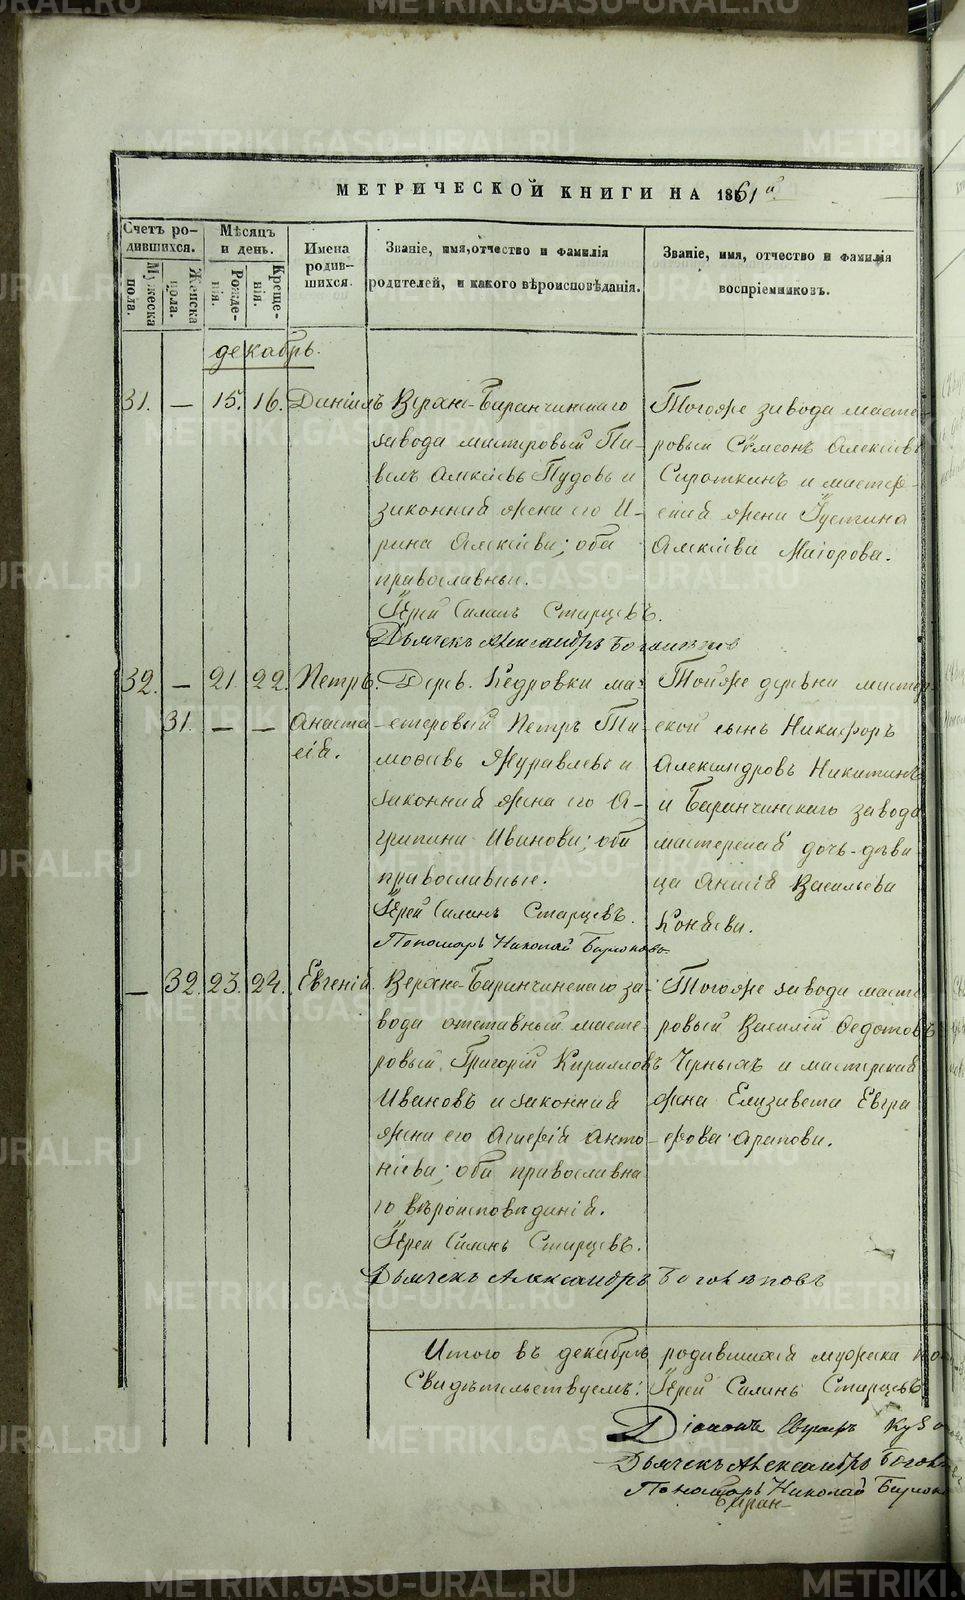 METRIKI.GASO-URAL.RU
МЕТРИЧЕСКОЙ КНИГИ НА 1861й
Счетъ ро-
дившихся.
Мужеска
пола.
Женска
пола.
Мѣсяцъ
и день.
Рожде-
нія.
Креще-
нія.
Имена
родив-
шихся.
Званіе, имя, отчество и фамилія
родителей, и какого вѣроисповѣданія.
Званіе, имя, отчество и фамилія
воспріемниковъ.
декабрь.
31. — 15. 16. Даніилъ
Верхне-Баранчинскаго
завода мастеровый Па-
велъ Алексѣевъ Пудовъ и
законная жена его И-
рина Алексіева; оба
православные.
Іерей Силинъ Старцевъ.
Дьячекъ Александръ
Тогоже завода масте-
ровый Сѵмеонъ Алексіевъ
Сироткинъ и мастер-
ская жена Іустина
Алексіева Маіорова.
32. — 21. 22. Петръ.
31. — — Анаста
сія.
Дерев. Кедровки ма-
стеровый Петръ Ти-
моѳеевъ Журавлевъ и
законная жена его А-
грипина Иванова; оба
православные.
Іерей Силинъ Старцевъ.
Пономарь Николай
Тойже деревни мастер-
ской сынъ Никифоръ
Александровъ Никитинъ
и Баранчинскаго завода
мастерская дочь-дѣви-
ца Анисія Васильева
Конѣева.
— 32. 23. 24. Евгенія.
Верхне-Баранчинскаго за-
вода отставный масте-
ровый Григорій Кирилловъ
Ивановъ и законная
жена его Агафія Анто-
ніева; оба православна
го вѣроисповѣданія.
Іерей Силинъ Старцевъ.
Дьячекъ Александръ
Тогоже завода масте-
ровый Василій Ѳедотовъ
Черныхъ и мастерская
жена Елизавета Евгра
фова Арапова.
Итого въ декабрѣ родившихся мужеска
Свидѣтельствуемъ: Іерей Силинъ Старцевъ
Діаконъ Евграфъ
Дьячекъ Александръ
Пономарь Николай